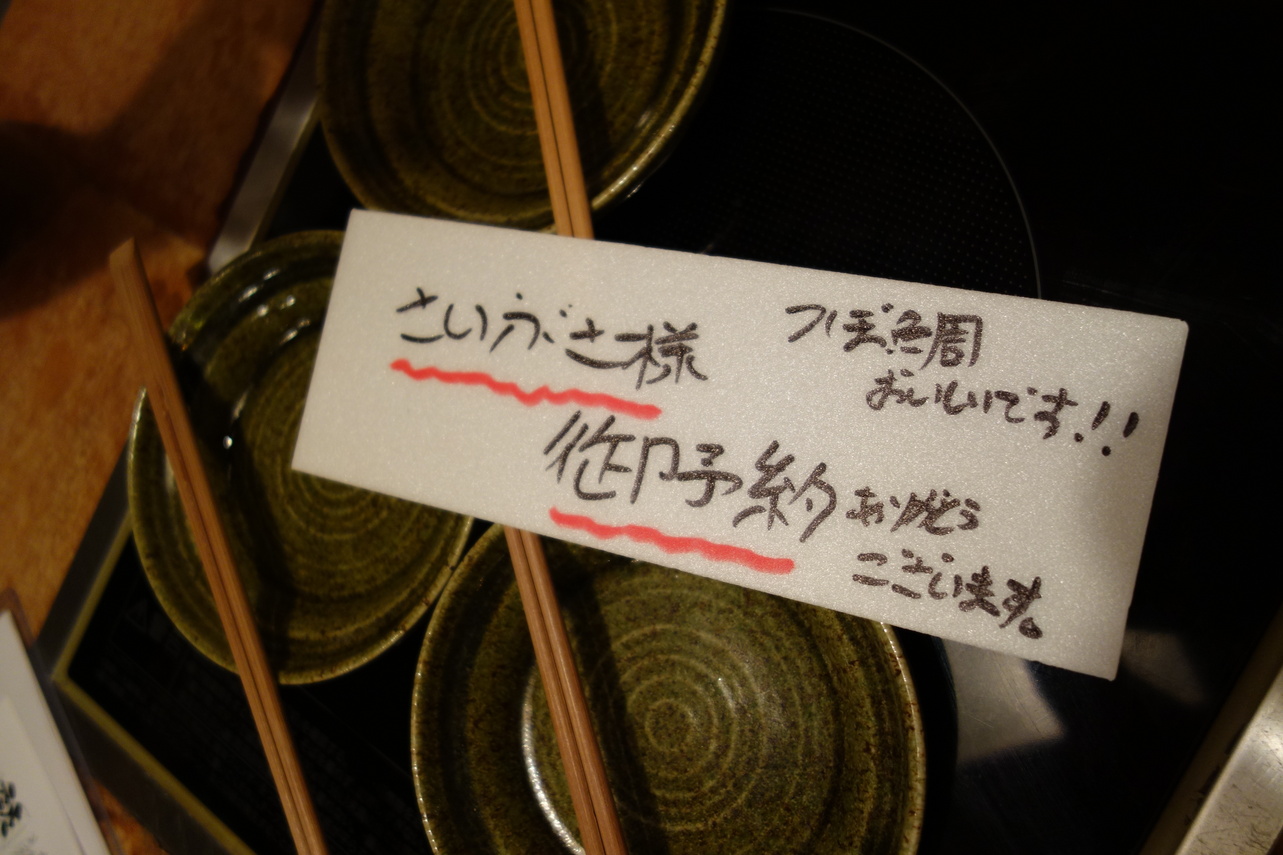 さいがさ様
つぼ鯛
おいしいです!!
御予約ありがとう
ございます。